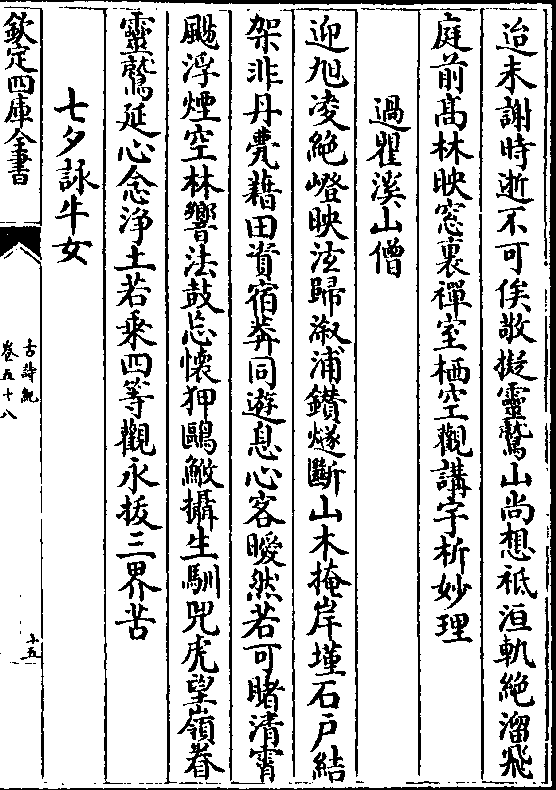 迨未謝時逝不可俟敬擬靈鷲山尚想祗洹軌絶溜飛
庭前高林映窓裏禪室栖空觀講宇析妙理
過瞿溪山僧
迎旭凌絶嶝映泫歸溆浦鑽燧斷山木掩岸墐石戶結
架非丹甍藉田資宿莽同遊息心客曖然若可睹清霄
颺浮煙空林響法鼓忘懷狎鷗鮍攝生馴兕虎望嶺眷
靈鷲延心念浄土若乘四等觀永拔三界苦
七夕詠牛女
欽定四庫全書
古詩紀
卷五十八
十五